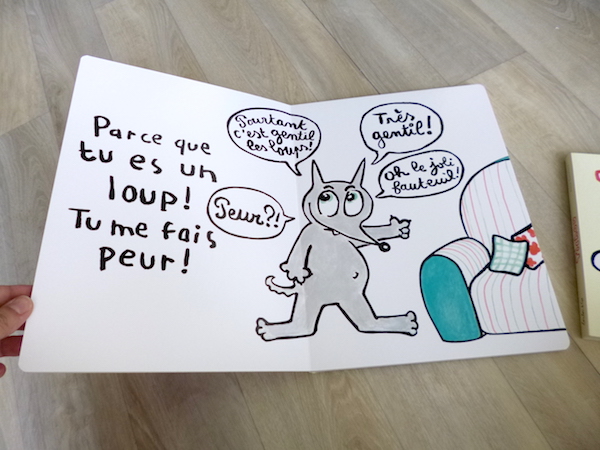 Parce que
tu es un
loup!
Tu me fais
peur!
Pourtant
c'est gentil
les loups!
Très
gentil!
Peur?!
Oh le joli
fauteuil!